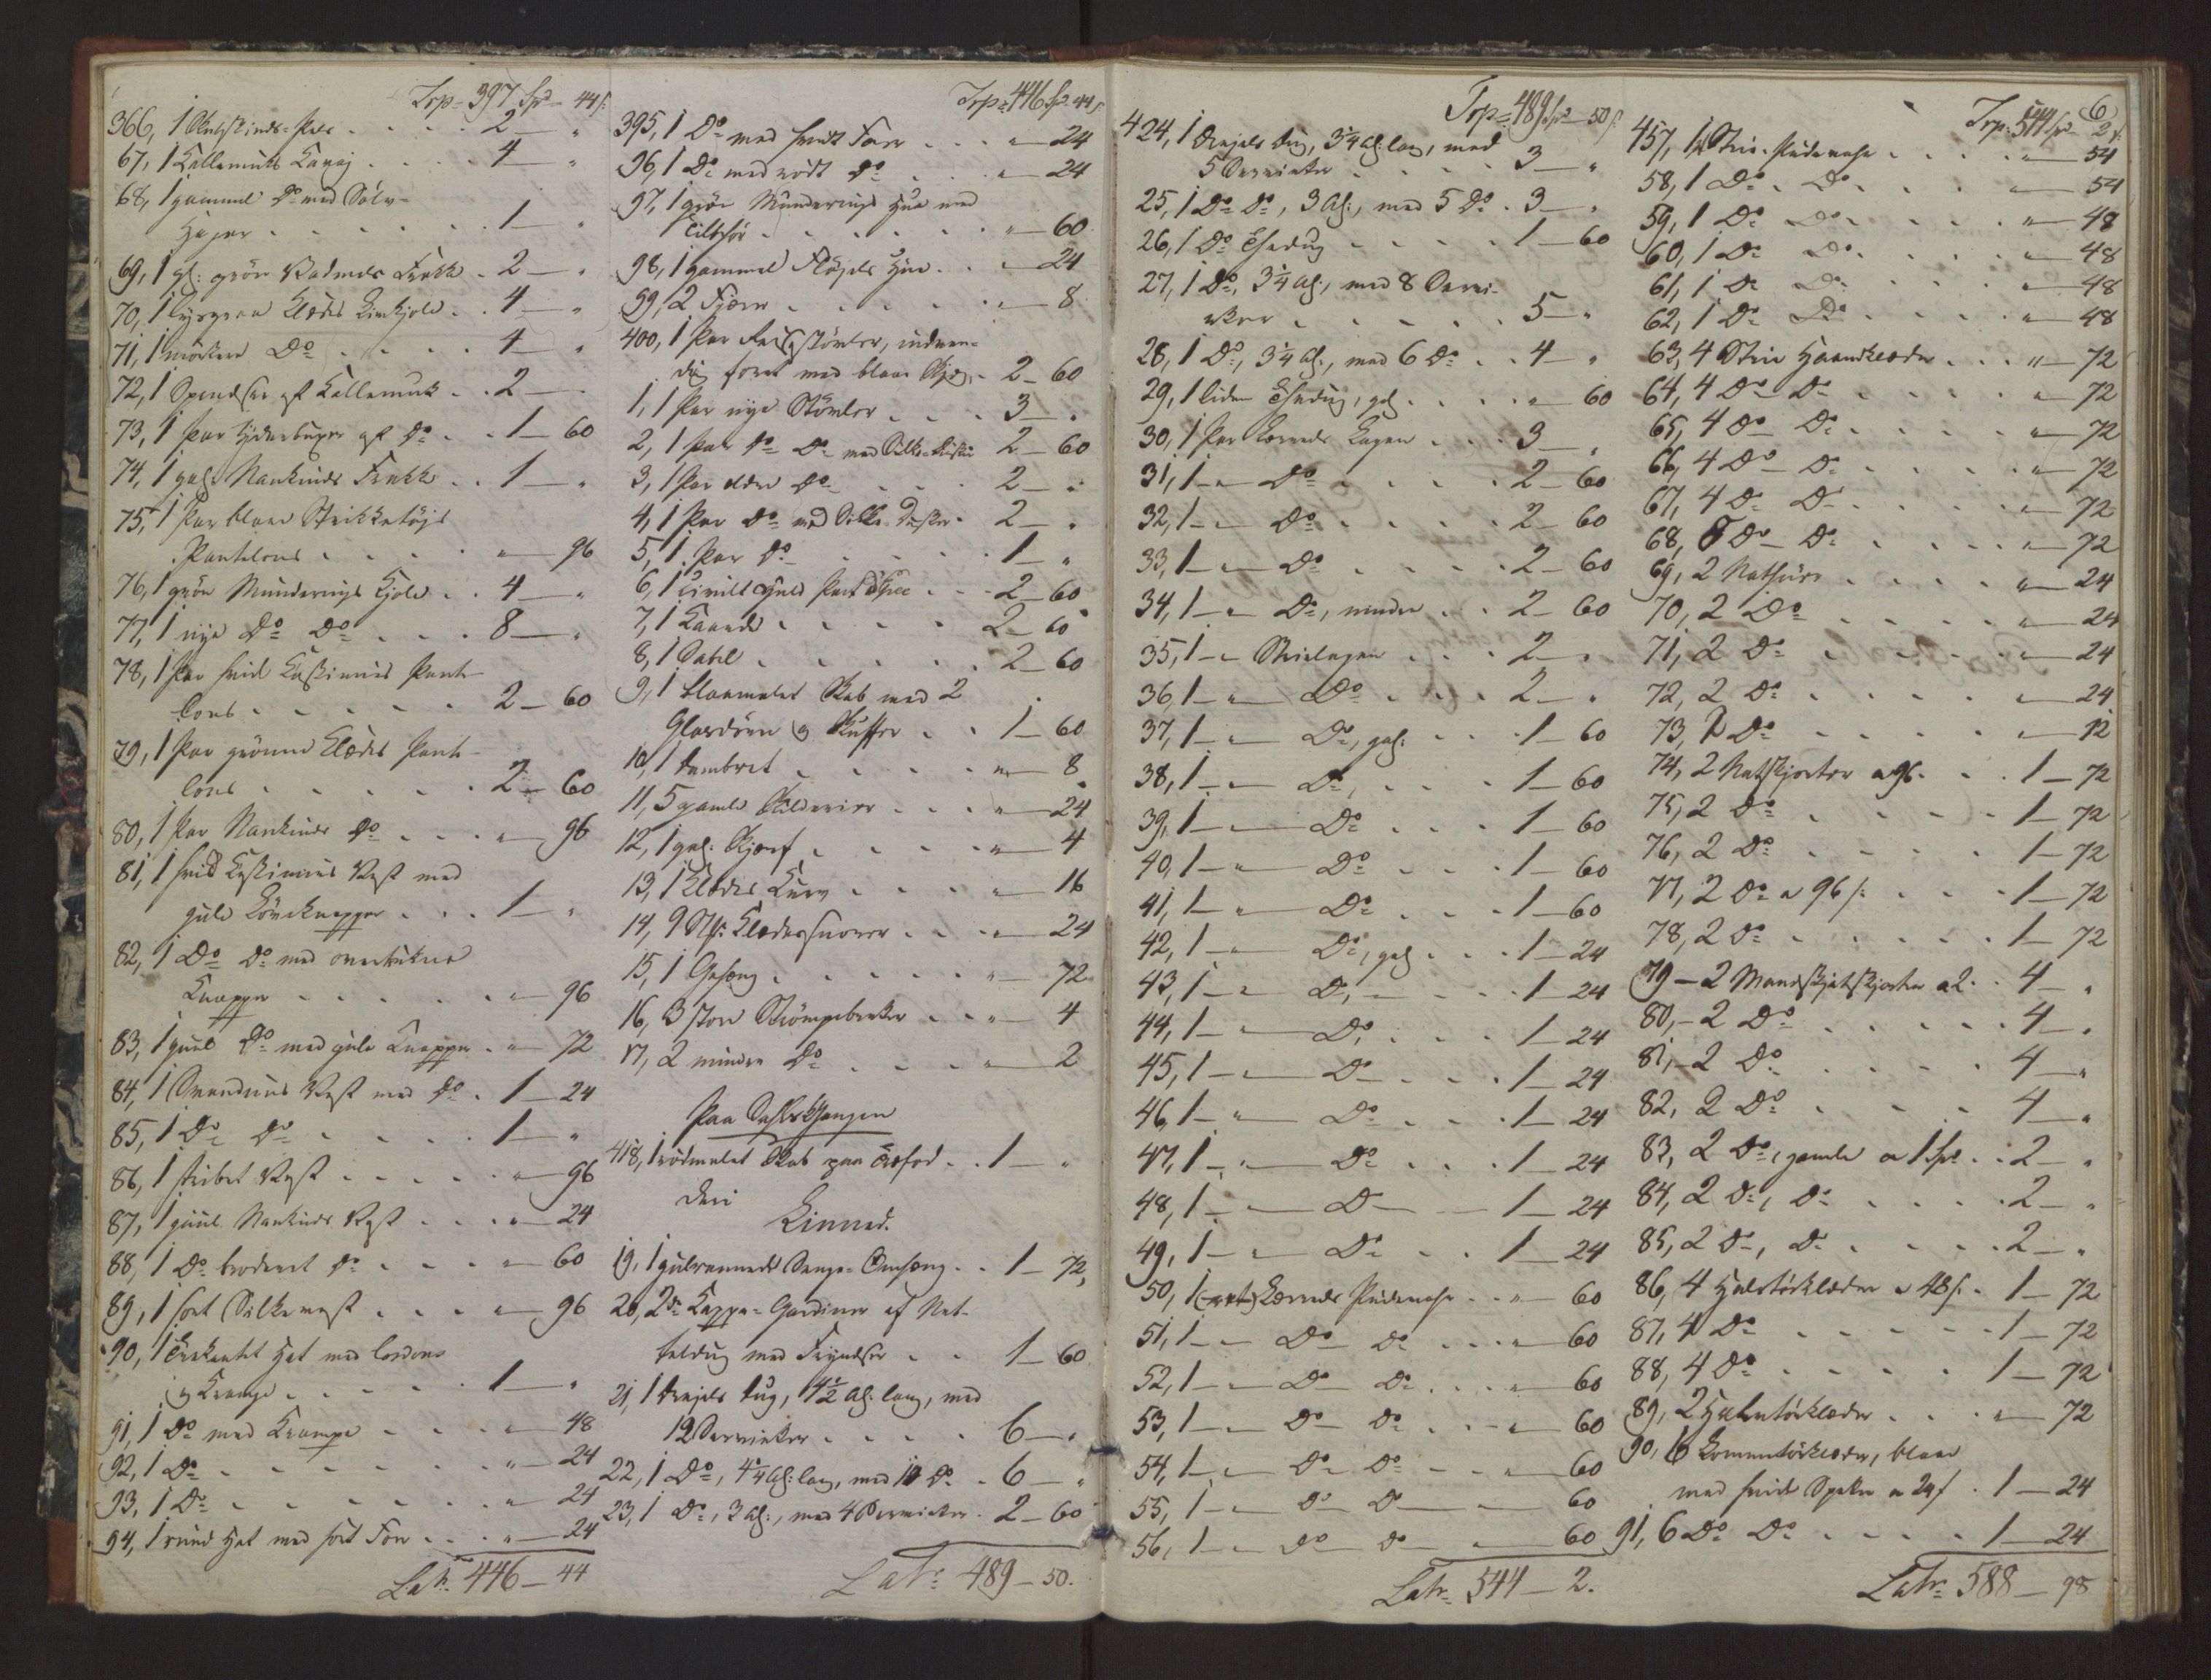 Trp. 397 Spd 44 s:
366, 1 Skindskinds-Pels . . . 2 — "
67, 1 Kallemuks Kavaj . . . 4 — "
68, 1 gammel Do med Sølv-
Hager . . . . . 1 — "
69, 1 gl: grön Vadmels Frakke . 2 — "
70, 1 lysgraa Klædes Livkjole . . 4 — "
71, 1 mörkere Do . . . . 4 — "
72, 1 Spendser af Kallemuk . . 2 — .
73, 1 Par Ryderbuxer af Do . . 1 — 60
74, 1 gul Nankinds Frakke . . 1 — "
75, 1 Par blaae Strikketöjs
Pantelons . . . . " — 96
76, 1 grön Munderings Kjole . . 4 — "
77, 1 nye Do Do . . . 8 — "
78, 1 Par hvid Cassimirs Pante
lons . . . . . 2 — 60
79, 1 Par grönne Klædes Pante
lons . . . . . 2 — 60
80, 1 Par Nankinds Do . . . " — 96
81, 1 hvid Cassimirs Vest med
gule Knapper . . . 1 — "
82, 1 Do Do med overtrukne
Knapper . . . . " — 96
83, 1 guul Do med gule Knapper . " — 72
84, 1 Vest med Do . 1 — 24
85, 1 Do Do . . . . 1 — "
86, 1 stribet Vest . . . . " — 96
87, 1 guul Nankinds Vest . . . " — 24
88, 1 Do broderet Do . . . " — 60
89, 1 sort Silkevest . . . " — 96
90, 1 trekantet Hat med Cordons
og Krampe . . . . 1 — "
91, 1 Do med Krampe . . . " — 48
92, 1 Do . . . . . . " — 24
93, 1 Do . . . . . . " — 24
94, 1 rund Hat med sort Foer . . " — 24
Latr. 446 — 44
Trp. 446 Spd 44 s
395, 1 Do med hvidt Foer . . . " — 24
96, 1 Do med rödt Do . . " — 24
97, 1 grön Munderings Hue med
Tilbehör . . . . . " — 60
98, 1 gammel Fløyels Hue . . " — 24
99, 2 Fjærer . . . . . " — 8
400, 1 Par Reisestövler, indven-
dig foret med blaae . 2 — 60
1, 1 Par nye Stövler . . . 3 — .
2, 1 Par Do Do med Silke-Dusker 2 — 60
3, 1 Par ældre Do . . . 2 — .
4, 1 Par Do med Silke Dusker . 2 — .
5, 1 Par Do . . . . 1 — "
6, 1 Civil . . . 2 — 60
7, 1 Kaarde . . . . 2 — 60
8, 1 Sabel . . . . . 2 — 60
9, 1 blaamalet Skab med 2
Glasdören og Skuffer . . 1 — 60
10, 1 Dambret . . . . " — 8
11, 5 gamle Skilderier . . . " — 24
12, 1 gul: Skjærf . . . . " — 4
13, 1 Klædes Kurv . . . " — 16
14, 9 Stk: Klædessnorer . . . " — 24
15, 1 . . . . . " — 72
16, 3 store Strömpebræter . . " — 4
17, 2 mindre Do . . . " — 2
Paa
418, 1 rödmalet Skab paa Trefod . . 1 — "
Deri
Linned.
19, 1 Senge-Omhæng . . 1 — 72
20, 2de Kappe-Gardiner af Net-
teldug med Fryndser . . 1 — 60
21, 1 Drejels Dug, 4½ Al: lang, med
12 Servietter . . . . 6 — .
22, 1 Do, 4¼ Al: lang, med 10 Do . 6 — "
23, 1 Do, 3 Al:, med 4 Servietter . 2 — 60
Latr. 489 — 50.
Trp. 489 Spd — 50 s
424, 1 Drejels Dug, 3¼ Al: lang, med
5 Servietter . . . . 3 — "
25, 1 Do Do, 3 Al:, med 5 Do . 3 — .
26, 1 Do Thedug . . . . 1 — 60
27, 1 Do, 3¼ Al:, med 8 Servi-
etter . . . . . 5 — "
28, 1 Do, 3¼ Al:, med 6 Do . . 4 — "
29, 1 liden Thedug, gul . . . " — 60
30, 1 Par Lærreds Lagen . . . 3 — "
31, 1 — " — Do . . . . 2 — 60
32, 1 — " — Do . . . . 2 — 60
33, 1 — " — Do . . . . 2 — 60
34, 1 — " — Do, mindre . . 2 — 60
35, 1 — " — Strielagen . . . 2 — "
36, 1 — " — Do . . . 2 — "
37, 1 — " — Do, gul: . . . 1 — 60
38, 1 — " — Do, . . . 1 — 60
39, 1 — " — Do . . . 1 — 60
40, 1 — " — Do . . . 1 — 60
41, 1 — " — Do . . . 1 — 60
42, 1 — " — Do, gul . . . 1 — 24
43, 1 — " — Do, . . . 1 — 24
44, 1 — " — Do, . . . 1 — 24
45, 1 — " — Do . . . 1 — 24
46, 1 — " — Do . . . 1 — 24
47, 1 — " — Do . . . 1 — 24
48, 1 — " — Do — 1 — 24
49, 1 — " — Do . . 1 — 24
50, 1 Lærreds Pudevaar . . " — 60
51, 1 — " — Do Do . . . " — 60
52, 1 — " — Do Do . . . " — 60
53, 1 — " — Do Do . . . " — 60
54, 1 — " — Do Do . . . " — 60
55, 1 — " — Do Do — " — 60
56, 1 — " — Do Do — " — 60
Latr. 544 — 2.
6
Trp. 544 Spd 2 s:
457, 1 Strie-Pudevaar . . . . " — 54
58, 1 Do . Do . . . . " — 54
59, 1 Do Do . . . . " — 48
60, 1 Do Do . . . . " — 48
61, 1 Do Do . . . . " — 48
62, 1 Do Do . . . . " — 48
63, 4 Strie Haandklæder . . . " — 72
64, 4 Do Do . . . . " — 72
65, 4 Do Do . . . . " — 72
66, 4 Do Do . . . . " — 72
67, 4 Do Do . . . . " — 72
68, 6 Do Do . . . . " — 72
69, 2 Nathuer . . . . " — 24
70, 2 Do . . . . . " — 24
71, 2 Do . . . . . " — 24
72, 2 Do . . . . . " — 24
73, 1 Do . . . . . " — 12
74, 2 Natskjorter a 96 . . . 1 — 72
75, 2 Do . . . . . 1 — 72
76, 2 Do . . . . . 1 — 72
77, 2 Do a 96 s: . . . 1 — 72
78, 2 Do . . . . . 1 — 72
79 — 2 Mandskjorter a 2 . . 4 — "
80, — 2 Do . . . . . 4 — .
81, — 2 Do . . . . . 4 — "
82, 2 Do . . . . . 4 — "
83, 2 Do, gamle a 1 Spd . . 2 — "
84, 2 Do, Do . . . . 2 — "
85, 2 Do, Do . . . . 2 — "
86, 4 Halstörklæder a 48 s . 1 — 72
87, 4 Do . . . . . 1 — 72
88, 4 Do . . . . . 1 — 72
89, 2 Halstörklæder . . . " — 72
90, 6 Lommetörklæder, blaae
med hvide a 24 s . 1 — 24
91, 6 Do Do . . . . 1 — 24
Latr. 588 — 98